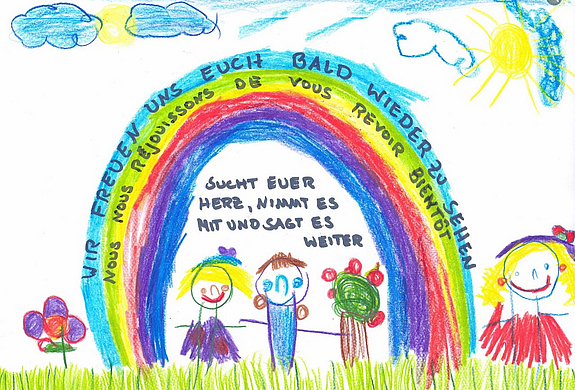 WIR FREUEN UNS EUCH BALD WIEDER ZU SEHEN
NOUS NOUS RÉJOUISSONS DE VOUS REVOIR BIENTÔT
SUCHT EUER
HERZ, NIMMT ES
MIT UND SAGT ES
WEITER